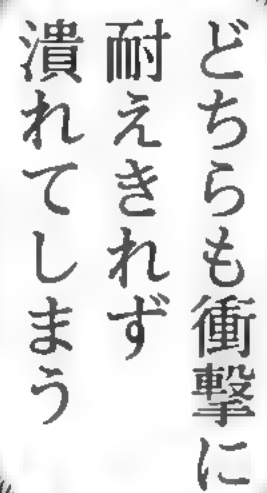 どちらも衝撃に
耐えきれず
潰れてしまう